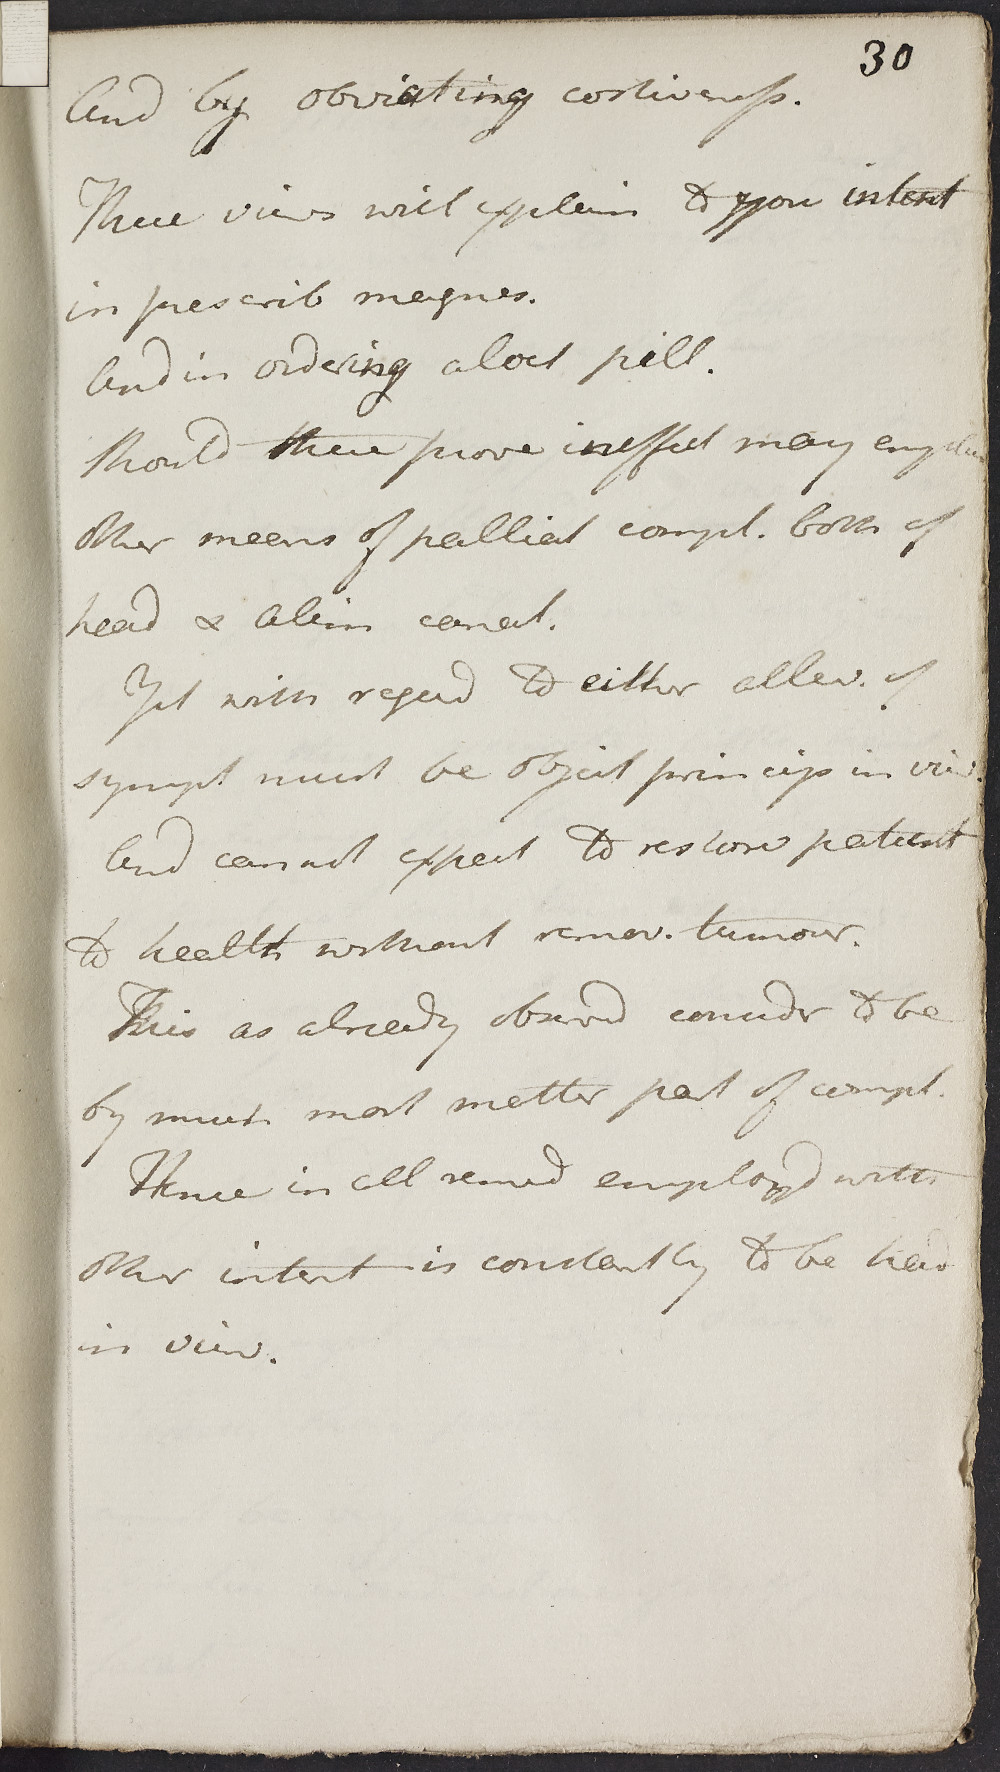 30
And by obviating costiveness.
These views will explain to you intent
in prescrib magnes.
And in ordering aloet pill.
Should these prove ineffect may employ
other means of palliat compl. both of
head & alim canal.
Yet with regard to either allev. of
sympt must be object princip in view.
And cannot expect to restore patient
to health without remov. tumour.
This as already observd consider to be
by much most matter part of compl.
Hence in all remed employd with
other intent is constantly to be head
in view.